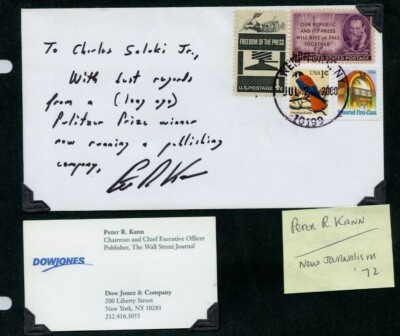 To Charles Saloki Jr.,
With best regards
from a (long ago)
Pulitzer Prize winner
now running a publishing
company,
FREEDOM OF THE PRESS
U.S. POSTAGE
OUR REPUBLIC
AND ITS PRESS
WILL RISE OR FALL
TOGETHER
UNITED STATES POSTAGE
USA 1¢
NY
JUL 2003
10199
Presorted First-Class
DOWJONES
Peter R. Kann
Chairman and Chief Executive Officer
Publisher, The Wall Street Journal
Dow Jones & Company
200 Liberty Street
New York, NY 10281
212.416.3055
Peter R Kann
New Journalism
'72